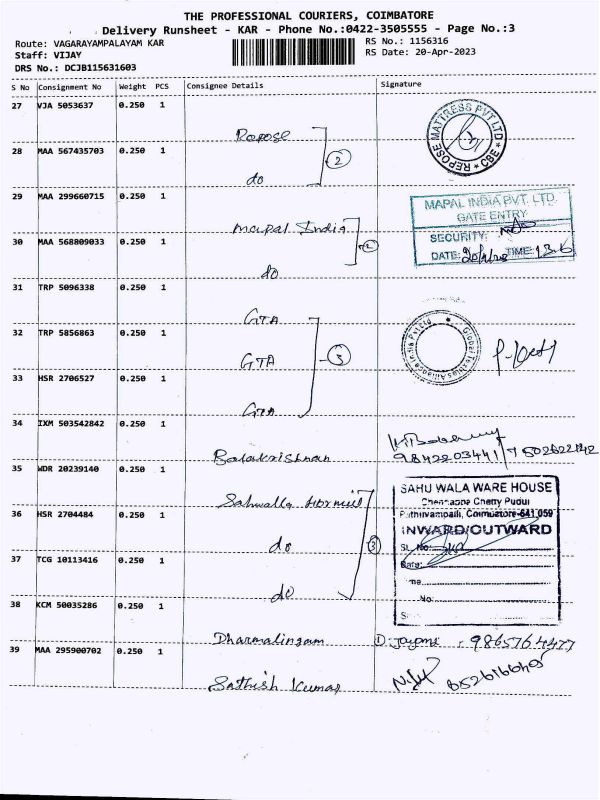 THE PROFESSIONAL COURIERS, COIMBATORE
Delivery Runsheet - KAR - Phone No.:0422-3505555 - Page No.:3
Route: VAGARAYAMPALAYAM KAR
RS No.: 1156316
Staff: VIJAY
RS Date: 20-Apr-2023
DRS No.: DCJB115631603
S No Consignment No Weight PCS Consignee Details Signature
27 VJA 5053637 0.250 1
Repose
REPOSE MATTRESS PVT LTD * CBE *
28 MAA 567435703 0.250 1
2
do
29 MAA 299660715 0.250 1
Mapal India
MAPAL INDIA PVT. LTD.
GATE ENTRY
30 MAA 568809033 0.250 1
2
do
SECURITY:
DATE: TIME:
31 TRP 5096338 0.250 1
GTA
32 TRP 5856863 0.250 1
GTA
3
33 HSR 2706527 0.250 1
GTA
34 IXM 503542842 0.250 1
Balakrishnan
9842203441
35 WDR 20239140 0.250 1
Sahwalla
SAHU WALA WARE HOUSE
Chennappa Chetty Pudur
36 HSR 2704484 0.250 1
do
3
Coimbatore-641 059
INWARD/OUTWARD
37 TCG 10113416 0.250 1
do
Sl. No:
Date:
No:
38 KCM 50035286 0.250 1
Dharmalingam
9865764477
39 MAA 295900702 0.250 1
Sathish Kumar